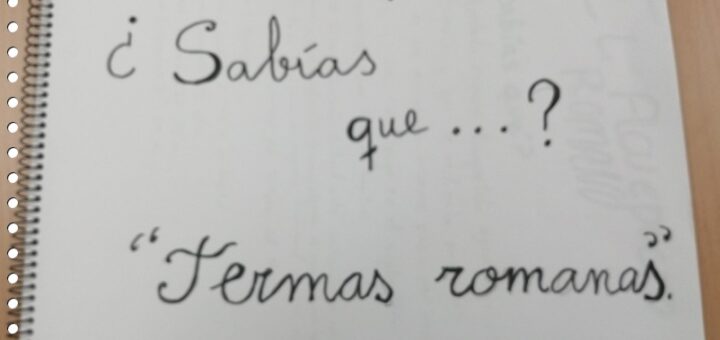 ¿Sabías
que ...?
“Termas romanas”.